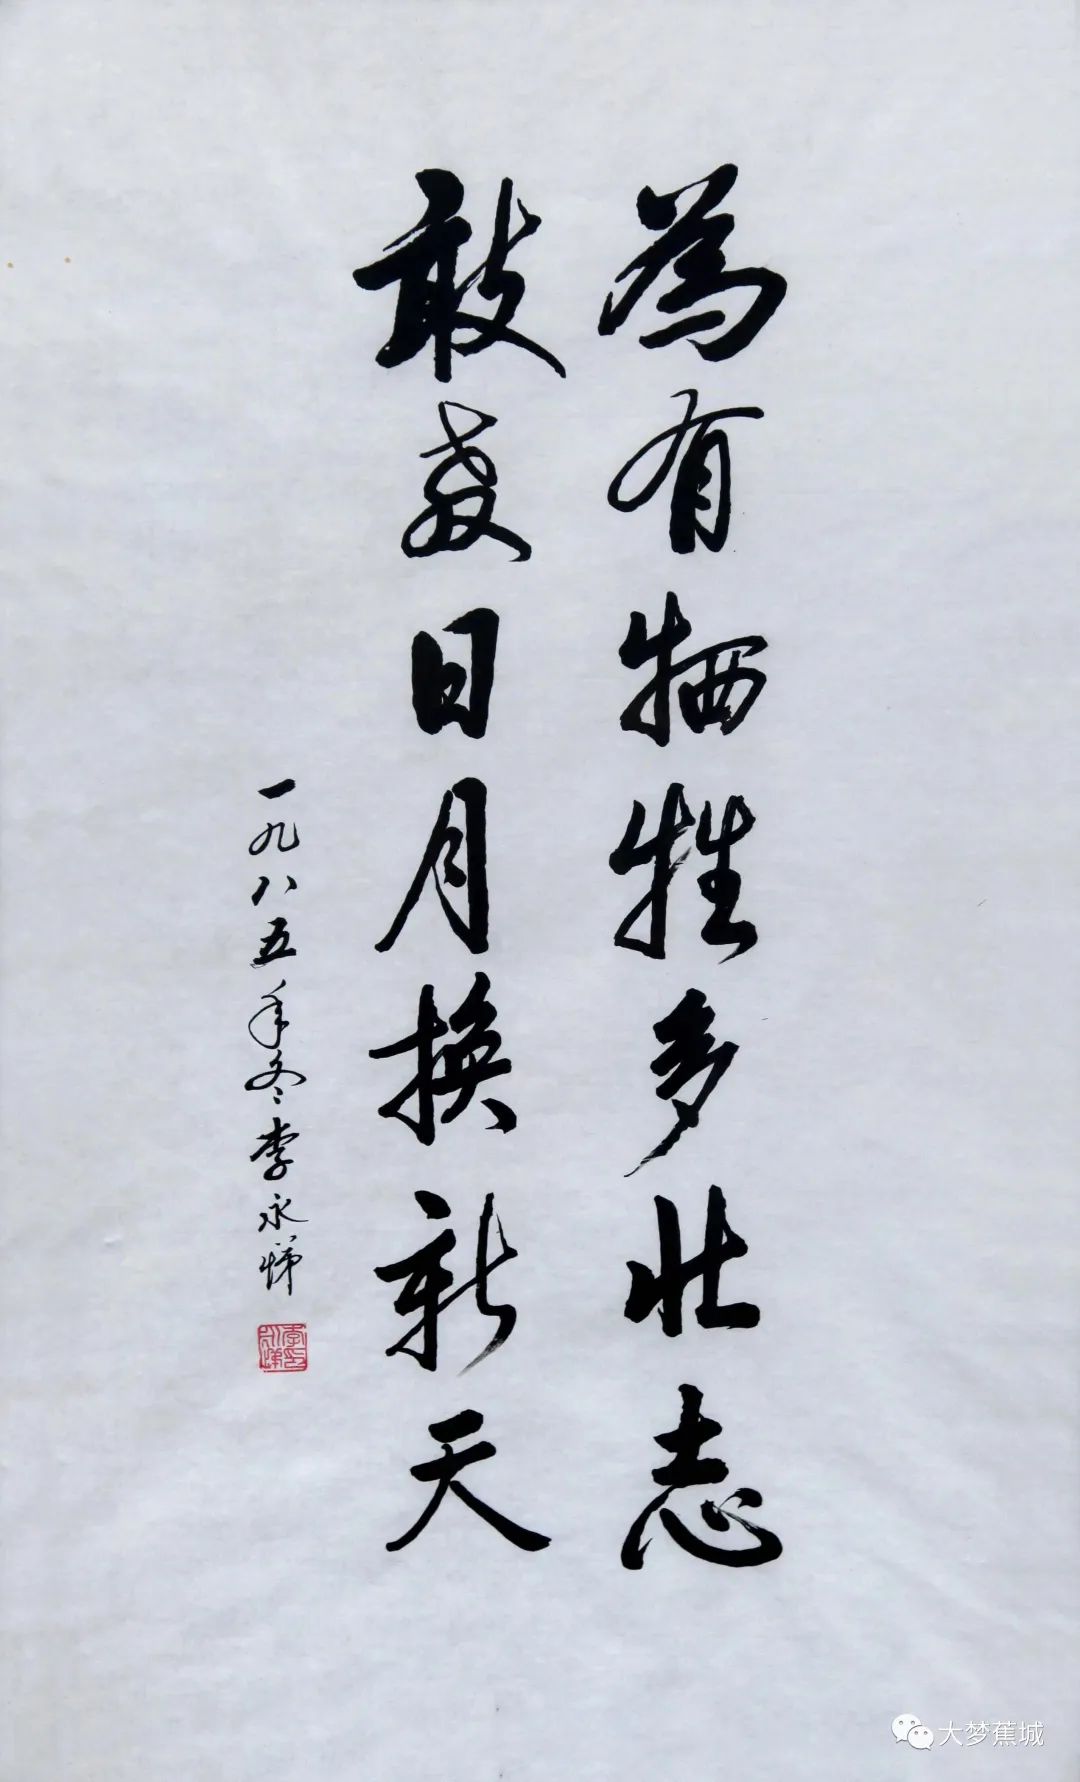 為有牺牲多壮志
敢教日月换新天
一九八五年冬李永悌
大梦蕉城